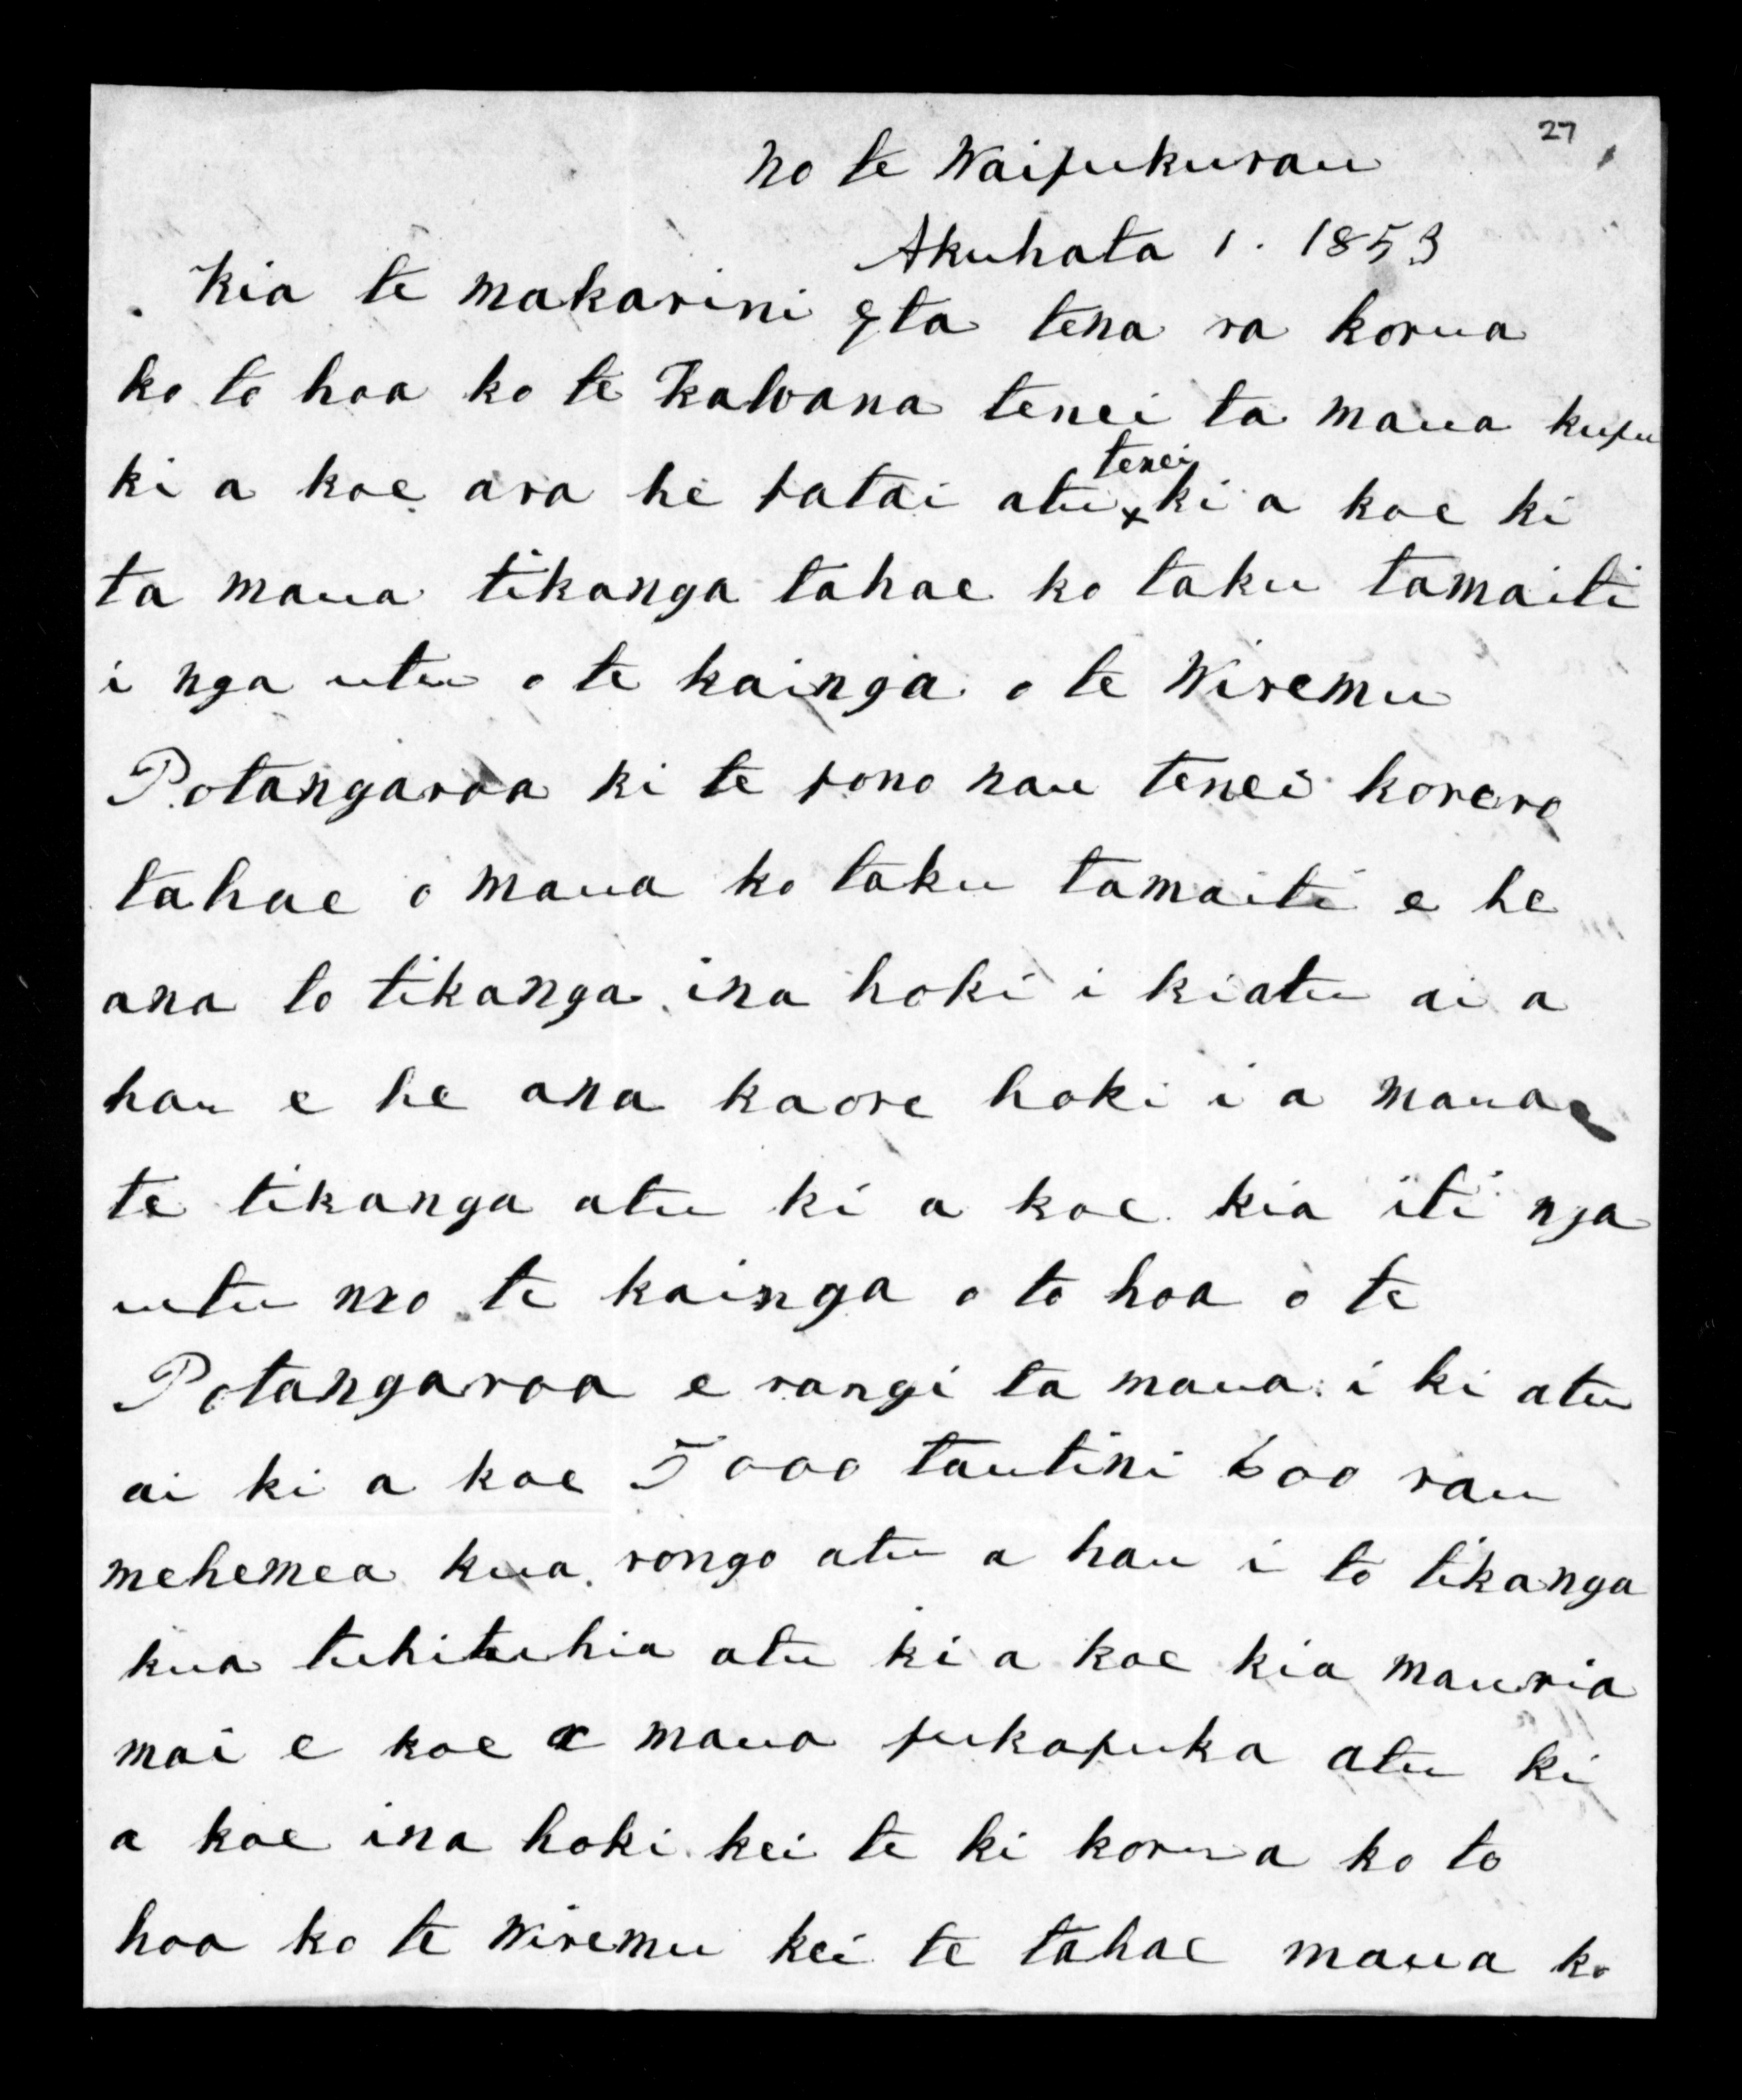 27
No te Waipukurau
Akuhata 1. 1853
Kia te makarini Eta tena ra korua
ko to hoa ko te Kawana tenei ta maua kupu
ki a koe ara he patai atu tenei ki a koe ki
ta maua tikanga tahae ko taku tamaiti
i nga utu o te kainga o te Wiremu
Potangaroa ki te pono nau tenei korero
tahae o maua ko taku tamaiti e he
ana to tikanga ina hoki i kiatu ai a
hau e he ana kaore hoki i a maua
te tikanga atu ki a koe kia iti nga
utu mo te kainga o to hoa o te
Potangaroa e rangi ta maua i ki atu
ai ki a koe 5000 tautini 600 rau
mehemea kua rongo atu a hau i to tikanga
kua tuhituhia atu ki a koe kia mauria
mai e koe a maua pukapuka atu ki
a koe ina hoki kei te ki korua ko to
hoa ko te Wiremu kei te tahae maua ko